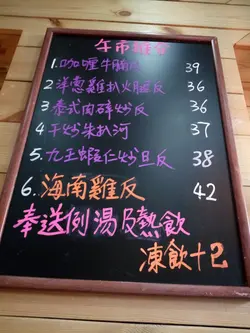 午市雞飯
1.咖喱牛腩反
39
2洋蔥雞扒火腿反
36
3.泰式肉碎炒反
36
4.干炒朱扒河
37
5.九王蝦仁炒旦反
38
6.海南雞反
42
奉送例湯及熱飲
凍飲十2